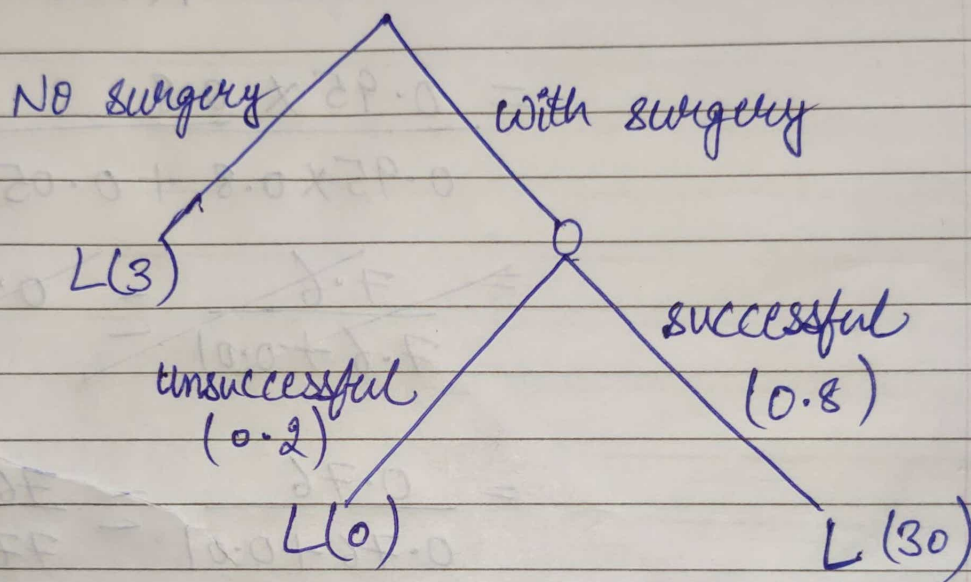 No surgery
with surgery
L(3)
successful
(0.8)
Unsuccessful
(0.2)
L(0)
L(30)